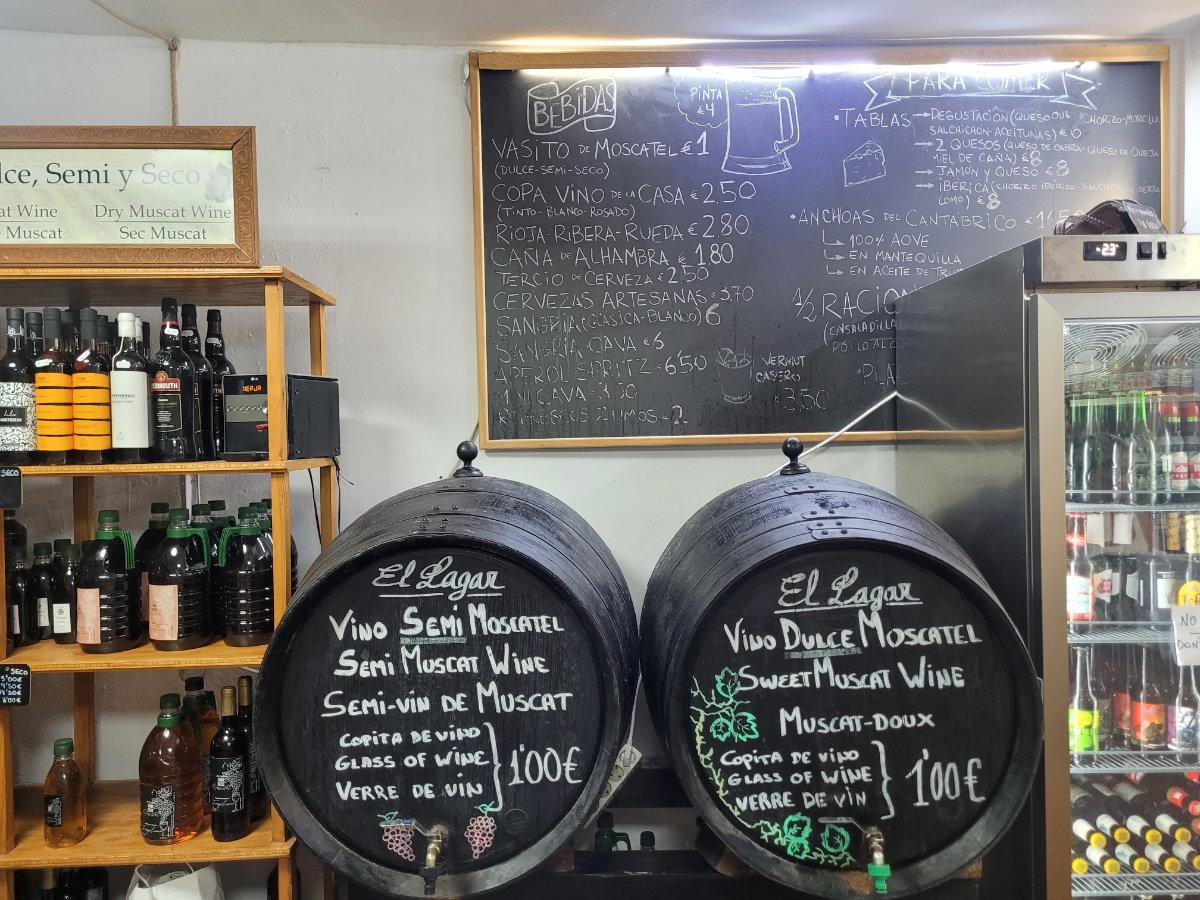 BEBIDAS
PINTA
€4
VASITO DE MOSCATEL €1
(DULCE-SEMI-SECO)
COPA VINO DE LA CASA €2,50
(TINTO-BLANCO-ROSADO)
RIOJA-RIBERA-RUEDA €2,80
CAÑA DE ALHAMBRA €1,80
TERCIO DE CERVEZA €2,50
CERVEZAS ARTESANAS €3,70
SANGRÍA (CLÁSICA-BLANCO) 6
SANGRÍA CAVA €6
APEROL SPRITZ €6'50
MINI CAVA 3,50
REFRESCOS ZUMOS €2
VERMUT
CASERO
€3,50
PARA COMER
•TABLAS
DEGUSTACIÓN (QUESO CHORIZO-MORCILLA
SALCHICHÓN-ACEITUNAS) €
2 QUESOS (QUESO DE CABRA-QUESO DE OVEJA
MIEL DE CAÑA) €8
JAMÓN Y QUESO €8
IBÉRICA (CHORIZO IBÉRICO-SALCHICHÓN IBÉRICO
LOMO) €8
•ANCHOAS DEL CANTÁBRICO
100% AOVE
EN MANTEQUILLA
EN ACEITE DE
1/2 RACION
(ENSALADILLA
POLLO AL
-23
lce, Semi y Seco
at Wine Dry Muscat Wine
Muscat Sec Muscat
VERMOUTH
SECO
SECO
El Lagar
VINO SEMI MOSCATEL
SEMI MUSCAT WINE
SEMI-VIN DE MUSCAT
COPITA DE VINO
GLASS OF WINE
VERRE DE VIN
1'00€
El Lagar
VINO DULCE MOSCATEL
SWEET MUSCAT WINE
MUSCAT-DOUX
COPITA DE VINO
GLASS OF WINE
VERRE DE VIN
1'00€
NO